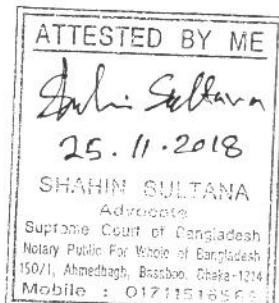 ATTESTED BY ME
Shahin Sultana
25.11.2018
SHAHIN SULTANA
Advocate
Supreme Court of Bangladesh
Notary Public For Whole of Bangladesh
150/1, Ahmedbagh, Basaboo, Dhaka-1214
Mobile :